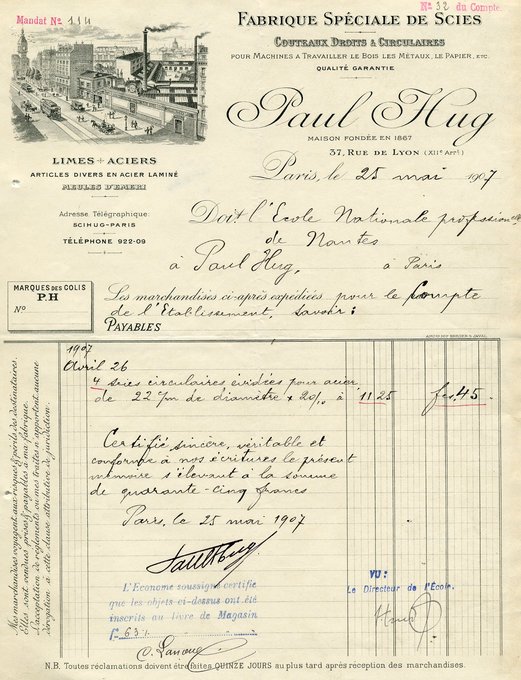 Mandat No 114
No 32 du Compte.
FABRIQUE SPÉCIALE DE SCIES
COUTEAUX DROITS & CIRCULAIRES
POUR MACHINES A TRAVAILLER LE BOIS LES MÉTAUX, LE PAPIER, ETC.
QUALITÉ GARANTIE
Paul Hug
MAISON FONDÉE EN 1867
37, RUE DE LYON (XIIe Arrt)
LIMES + ACIERS
ARTICLES DIVERS EN ACIER LAMINÉ
MEULES D'EMERI
Adresse Télégraphique:
SCIHUG-PARIS
TÉLÉPHONE 922-09
Paris, le 25 mai 1907
Doit l'Ecole Nationale professionelle
de Nantes
à Paul Hug, à Paris
MARQUES DES COLIS
P.H
No
Les marchandises ci-après expédiées pour le Compte
de l'Etablissement, savoir:
PAYABLES
1907
Avril 26
4 scies circulaires évidées pour acier
de 22 c/m de diamètre x 20/10 à 11 25 fcs 45
Certifié sincère, véritable et
conforme à nos écritures le présent
mémoire s'élevant à la somme
de quarante-cinq francs
Paris, le 25 mai 1907
Paul Hug
L'Econome soussigné certifie
que les objets ci-dessus ont été
inscrits au livre de Magasin
fo 63
VU:
Le Directeur de l'École.
Mes marchandises voyagent aux risques & périls des destinataires.
Elles sont vendues, prises & payables à ma fabrique.
L'acceptation de règlements ou mes traites n'apportent aucune
dérogation à cette clause attributive de juridiction.
N.B. Toutes réclamations doivent être faites QUINZE JOURS au plus tard après réception des marchandises.